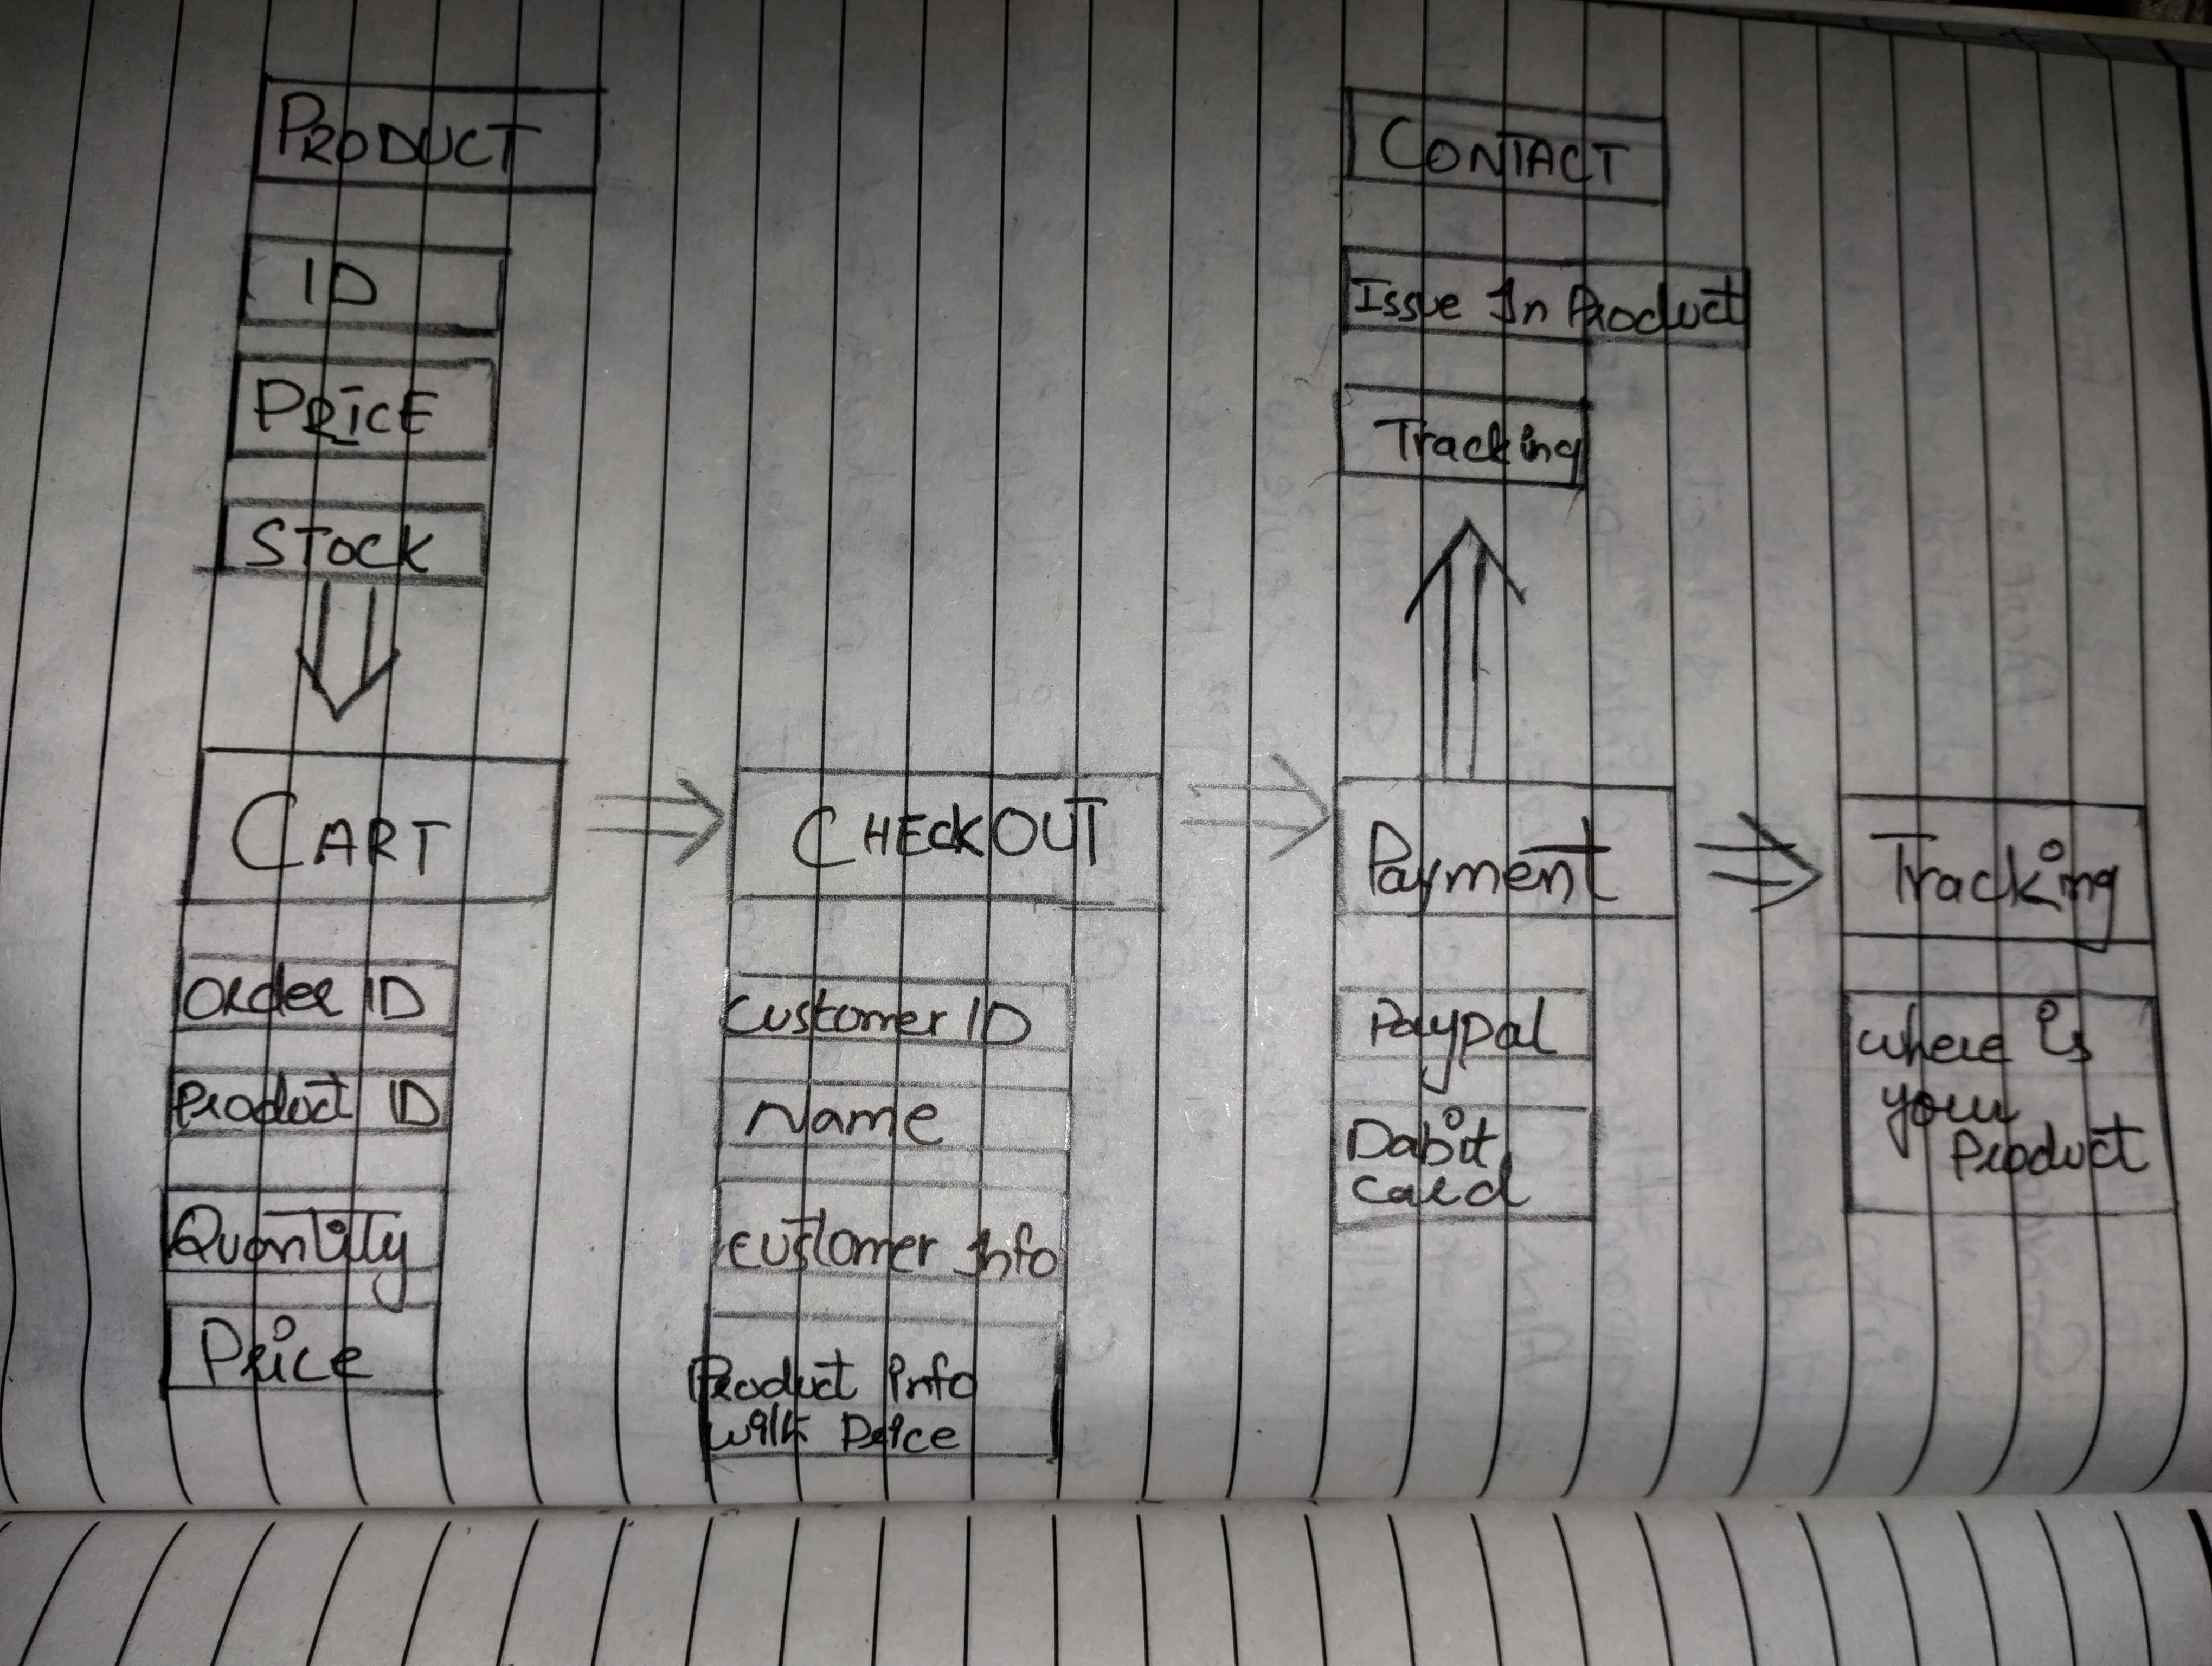 PRODUCT
ID
PRICE
STOCK
CART
Order ID
Product ID
Quantity
Price
CHECKOUT
Customer ID
Name
Customer Info
Product Info
with Price
CONTACT
Issue In Product
Tracking
Payment
Paypal
Dabit
Card
Tracking
where is
your
Product